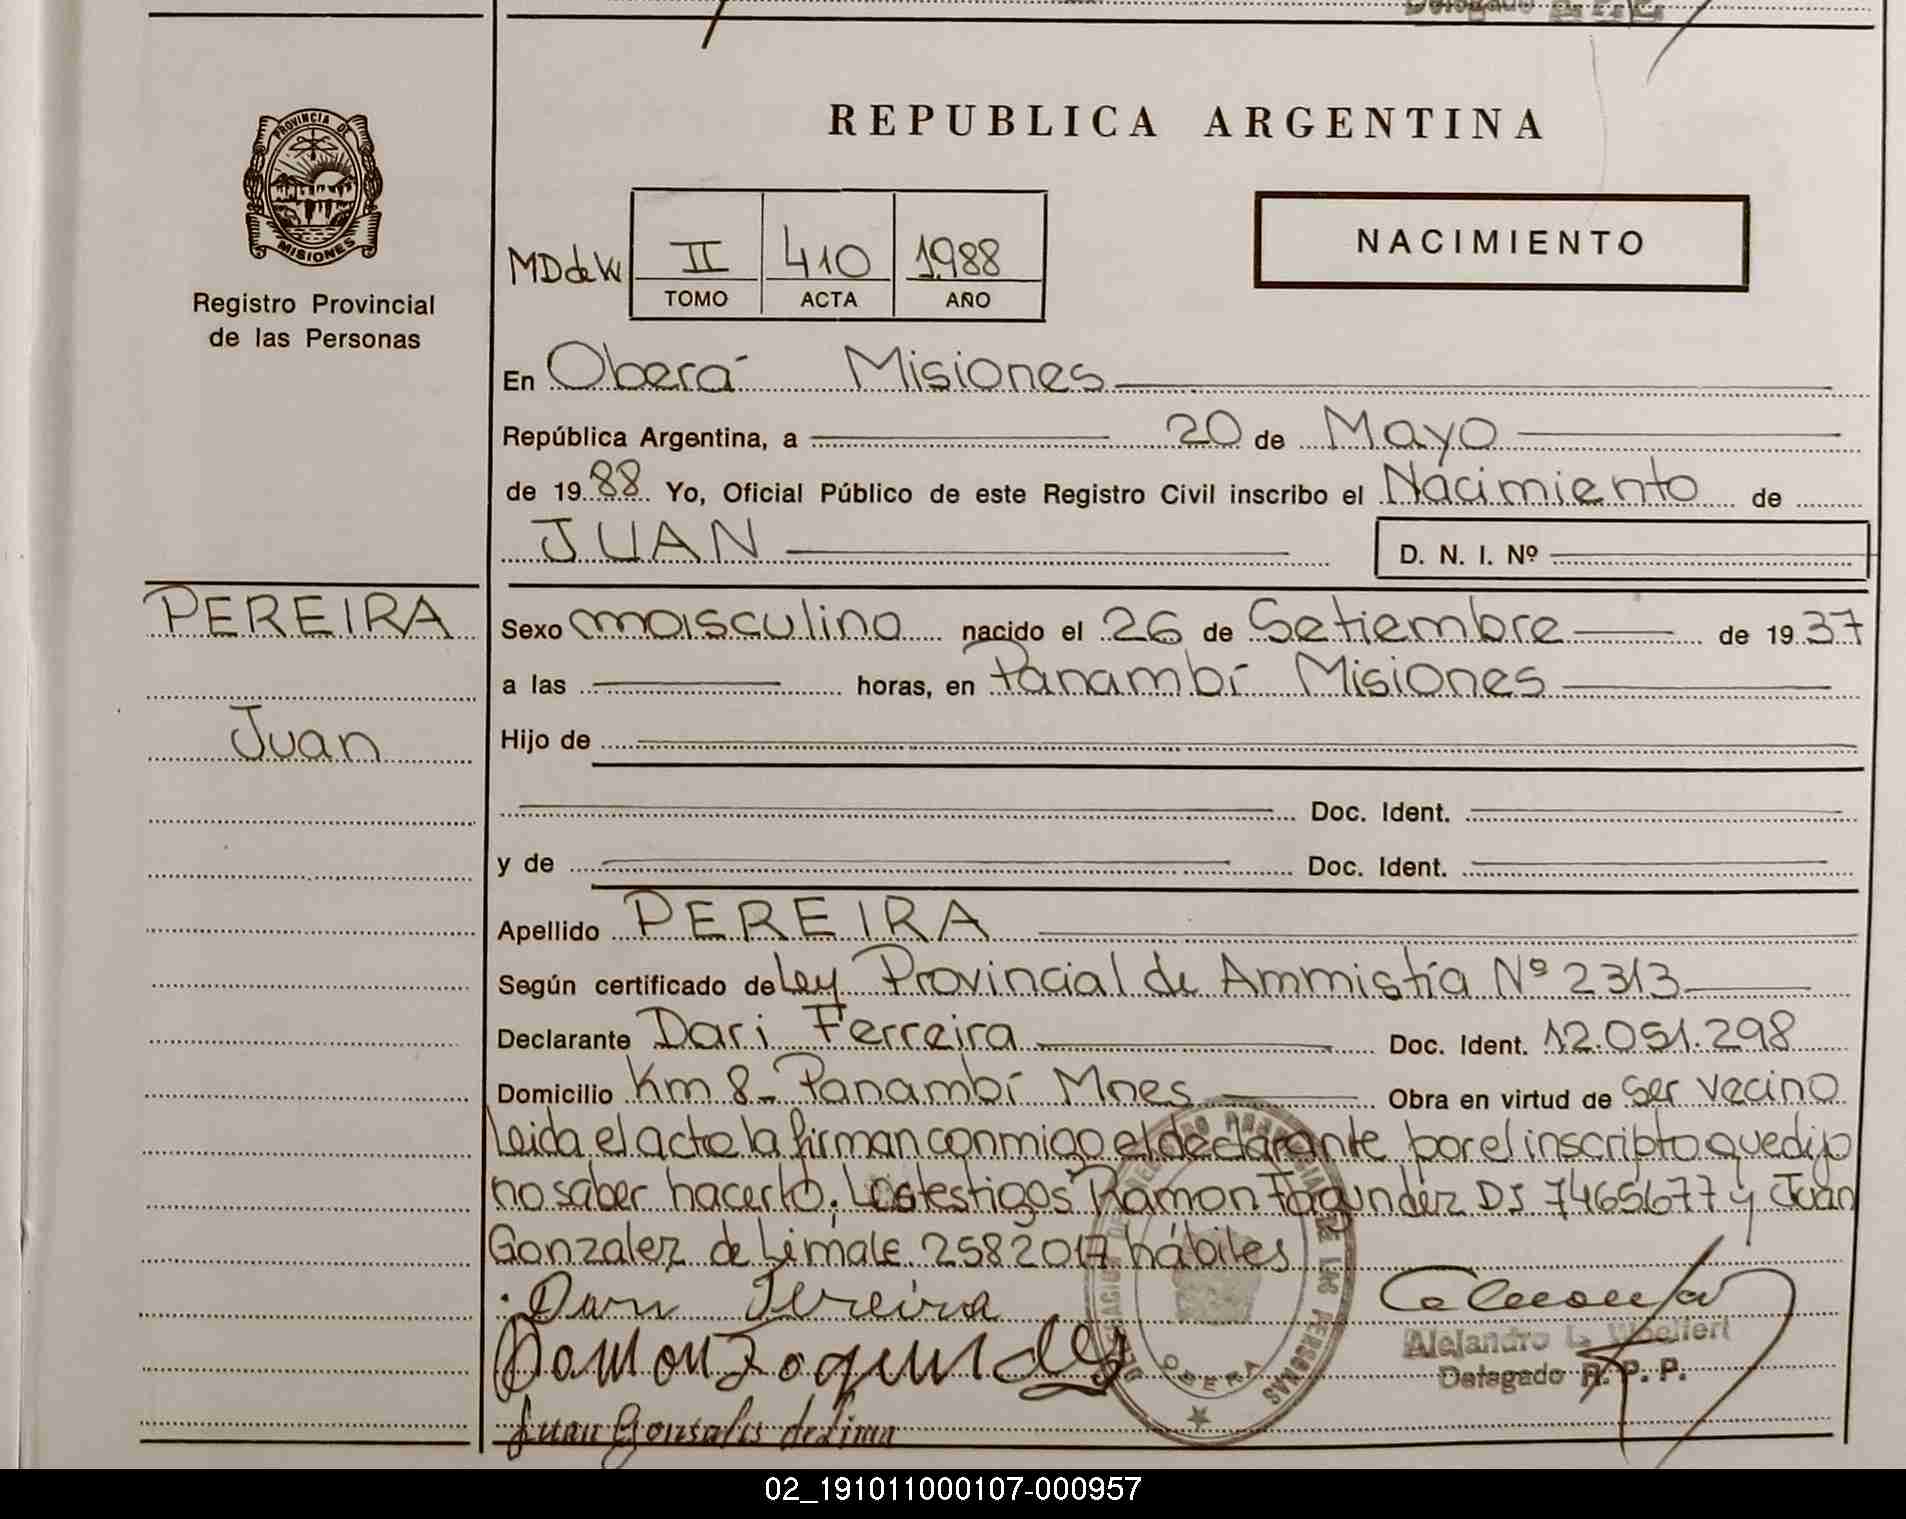 Delegado
PROVINCIA DE
MISIONES
Registro Provincial
de las Personas
REPUBLICA ARGENTINA
NACIMIENTO
MDdeW II 410 1988
TOMO ACTA AÑO
En Oberá Misiones
República Argentina, a 20 de Mayo
de 1988 Yo, Oficial Público de este Registro Civil inscribo el Nacimiento de
JUAN D. N. I. Nº
PEREIRA
Juan
Sexo masculino nacido el 26 de Setiembre de 1937
a las horas, en Panambí Misiones
Hijo de
Doc. Ident.
y de Doc. Ident.
Apellido PEREIRA
Según certificado de Ley Provincial de Ammistía Nº 2313
Declarante Dari Ferreira Doc. Ident. 12.051.298
Domicilio Km 8- Panambí Mnes Obra en virtud de ser vecino
Leida el acta la firman conmigo el declarante por el inscripto que dijo
no saber hacerlo; Los testigos Ramon Fagundez DI 7465677 y Juan
Gonzalez de Lima LE 2582017 hábiles
Dari Ferreira
Ramon Fagundez
Juan Gonsalis de Lima
OBERA
Alejandro L.
Delegado R. P. P.
02_191011000107-000957